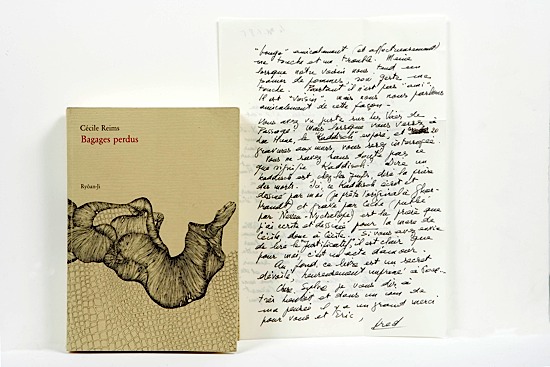 Cécile Reims
Bagages perdus
Ryôan-ji
"bouge" amicalement (et affectueusement)
me touche et me trouble. Même
lorsque notre voisin nous tend un
panier de pommes, son geste me
touche. Pourtant il n'est pas "ami".
Il est "voisin", mais nous nous parlons
amicalement de cette façon.
Vous avez vu juste sur les lieux de
Passage. Mais lorsque vous verrez à
La Hune, le Kaddisch exposé, et 20
gravures aux murs, vous serez
Vous ne savez sans doute pas ce
que signifie Kaddisch. Dire un
Kaddisch est chez les Juifs, dire la prière
des morts. Ici, ce Kaddisch écrit et
dessiné par moi (a prêté l'original à
) et gravé par Cécile (publié
par ) est la prière que
j'ai écrite et dessinée pour la mère de
Cécile, donc à Cécile. Si vous avez envie
de lire le "justificatif", il est clair que
pour moi, c'est un acte d'amour.
Au fond ce livre est un secret
dévoilé, heureusement imprimé à
Chère Sylvie je vous dis à
très bientôt et dans un coin de
ma pensée il y a un grand merci
pour vous et Eric,
Fred